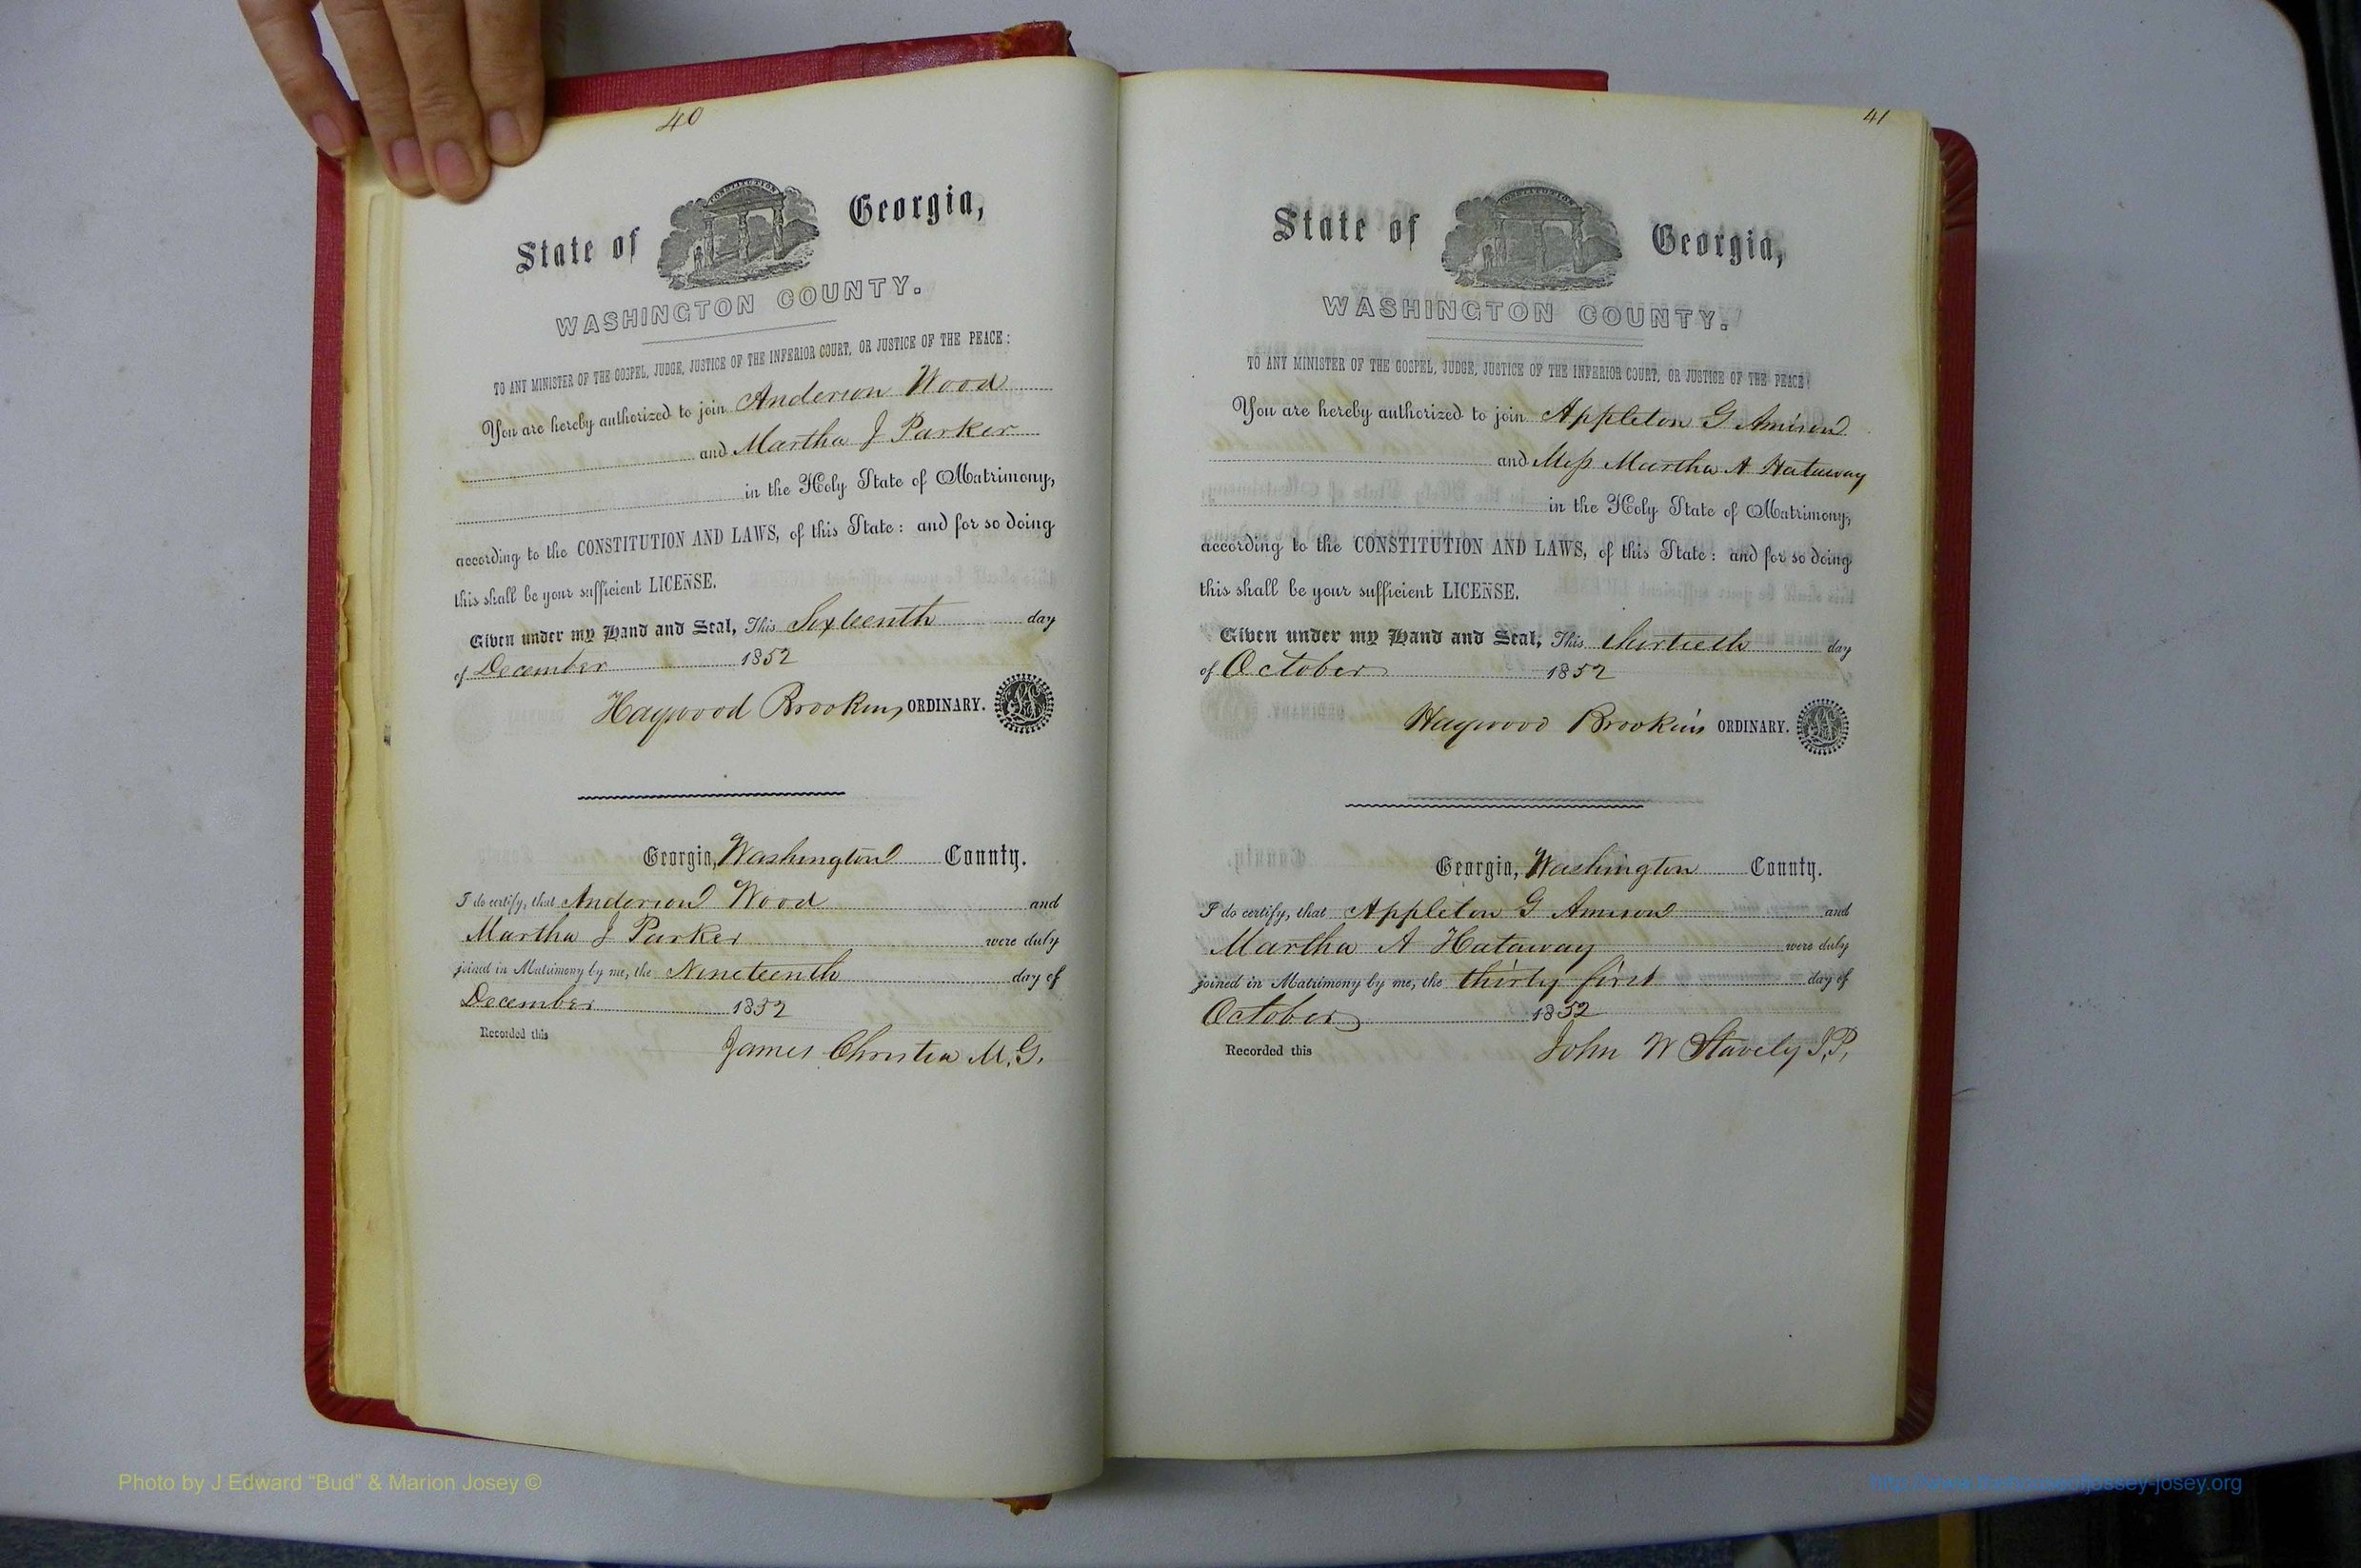 40
CONSTITUTION
State of Georgia,
WASHINGTON COUNTY.
TO ANY MINISTER OF THE GOSPEL, JUDGE, JUSTICE OF THE INFERIOR COURT, OR JUSTICE OF THE PEACE:
You are hereby authorized to join Anderson Wood
and Martha J Parker
in the Holy State of Matrimony,
according to the CONSTITUTION AND LAWS, of this State: and for so doing
this shall be your sufficient LICENSE.
Given under my Hand and Seal, This Sixteenth day
of December 1852
Haywood Brookins ORDINARY.
Georgia, Washington County.
I do certify, that Anderson Wood and
Martha J Parker were duly
joined in Matrimony by me, the Nineteenth day of
December 1852
Recorded this
James Christia M.G.
41
CONSTITUTION
State of Georgia,
WASHINGTON COUNTY.
TO ANY MINISTER OF THE GOSPEL, JUDGE, JUSTICE OF THE INFERIOR COURT, OR JUSTICE OF THE PEACE:
You are hereby authorized to join Appleton G Amison
and Miss Martha A Hataway
in the Holy State of Matrimony,
according to the CONSTITUTION AND LAWS, of this State: and for so doing
this shall be your sufficient LICENSE.
Given under my Hand and Seal, This thirtieth day
of October 1852
Haywood Brookins ORDINARY.
Georgia, Washington County.
I do certify, that Appleton G Amison and
Martha A Hataway were duly
joined in Matrimony by me, the thirty first day of
October 1852
Recorded this
John W Stavely J.P.
Photo by J Edward “Bud” & Marion Josey ©